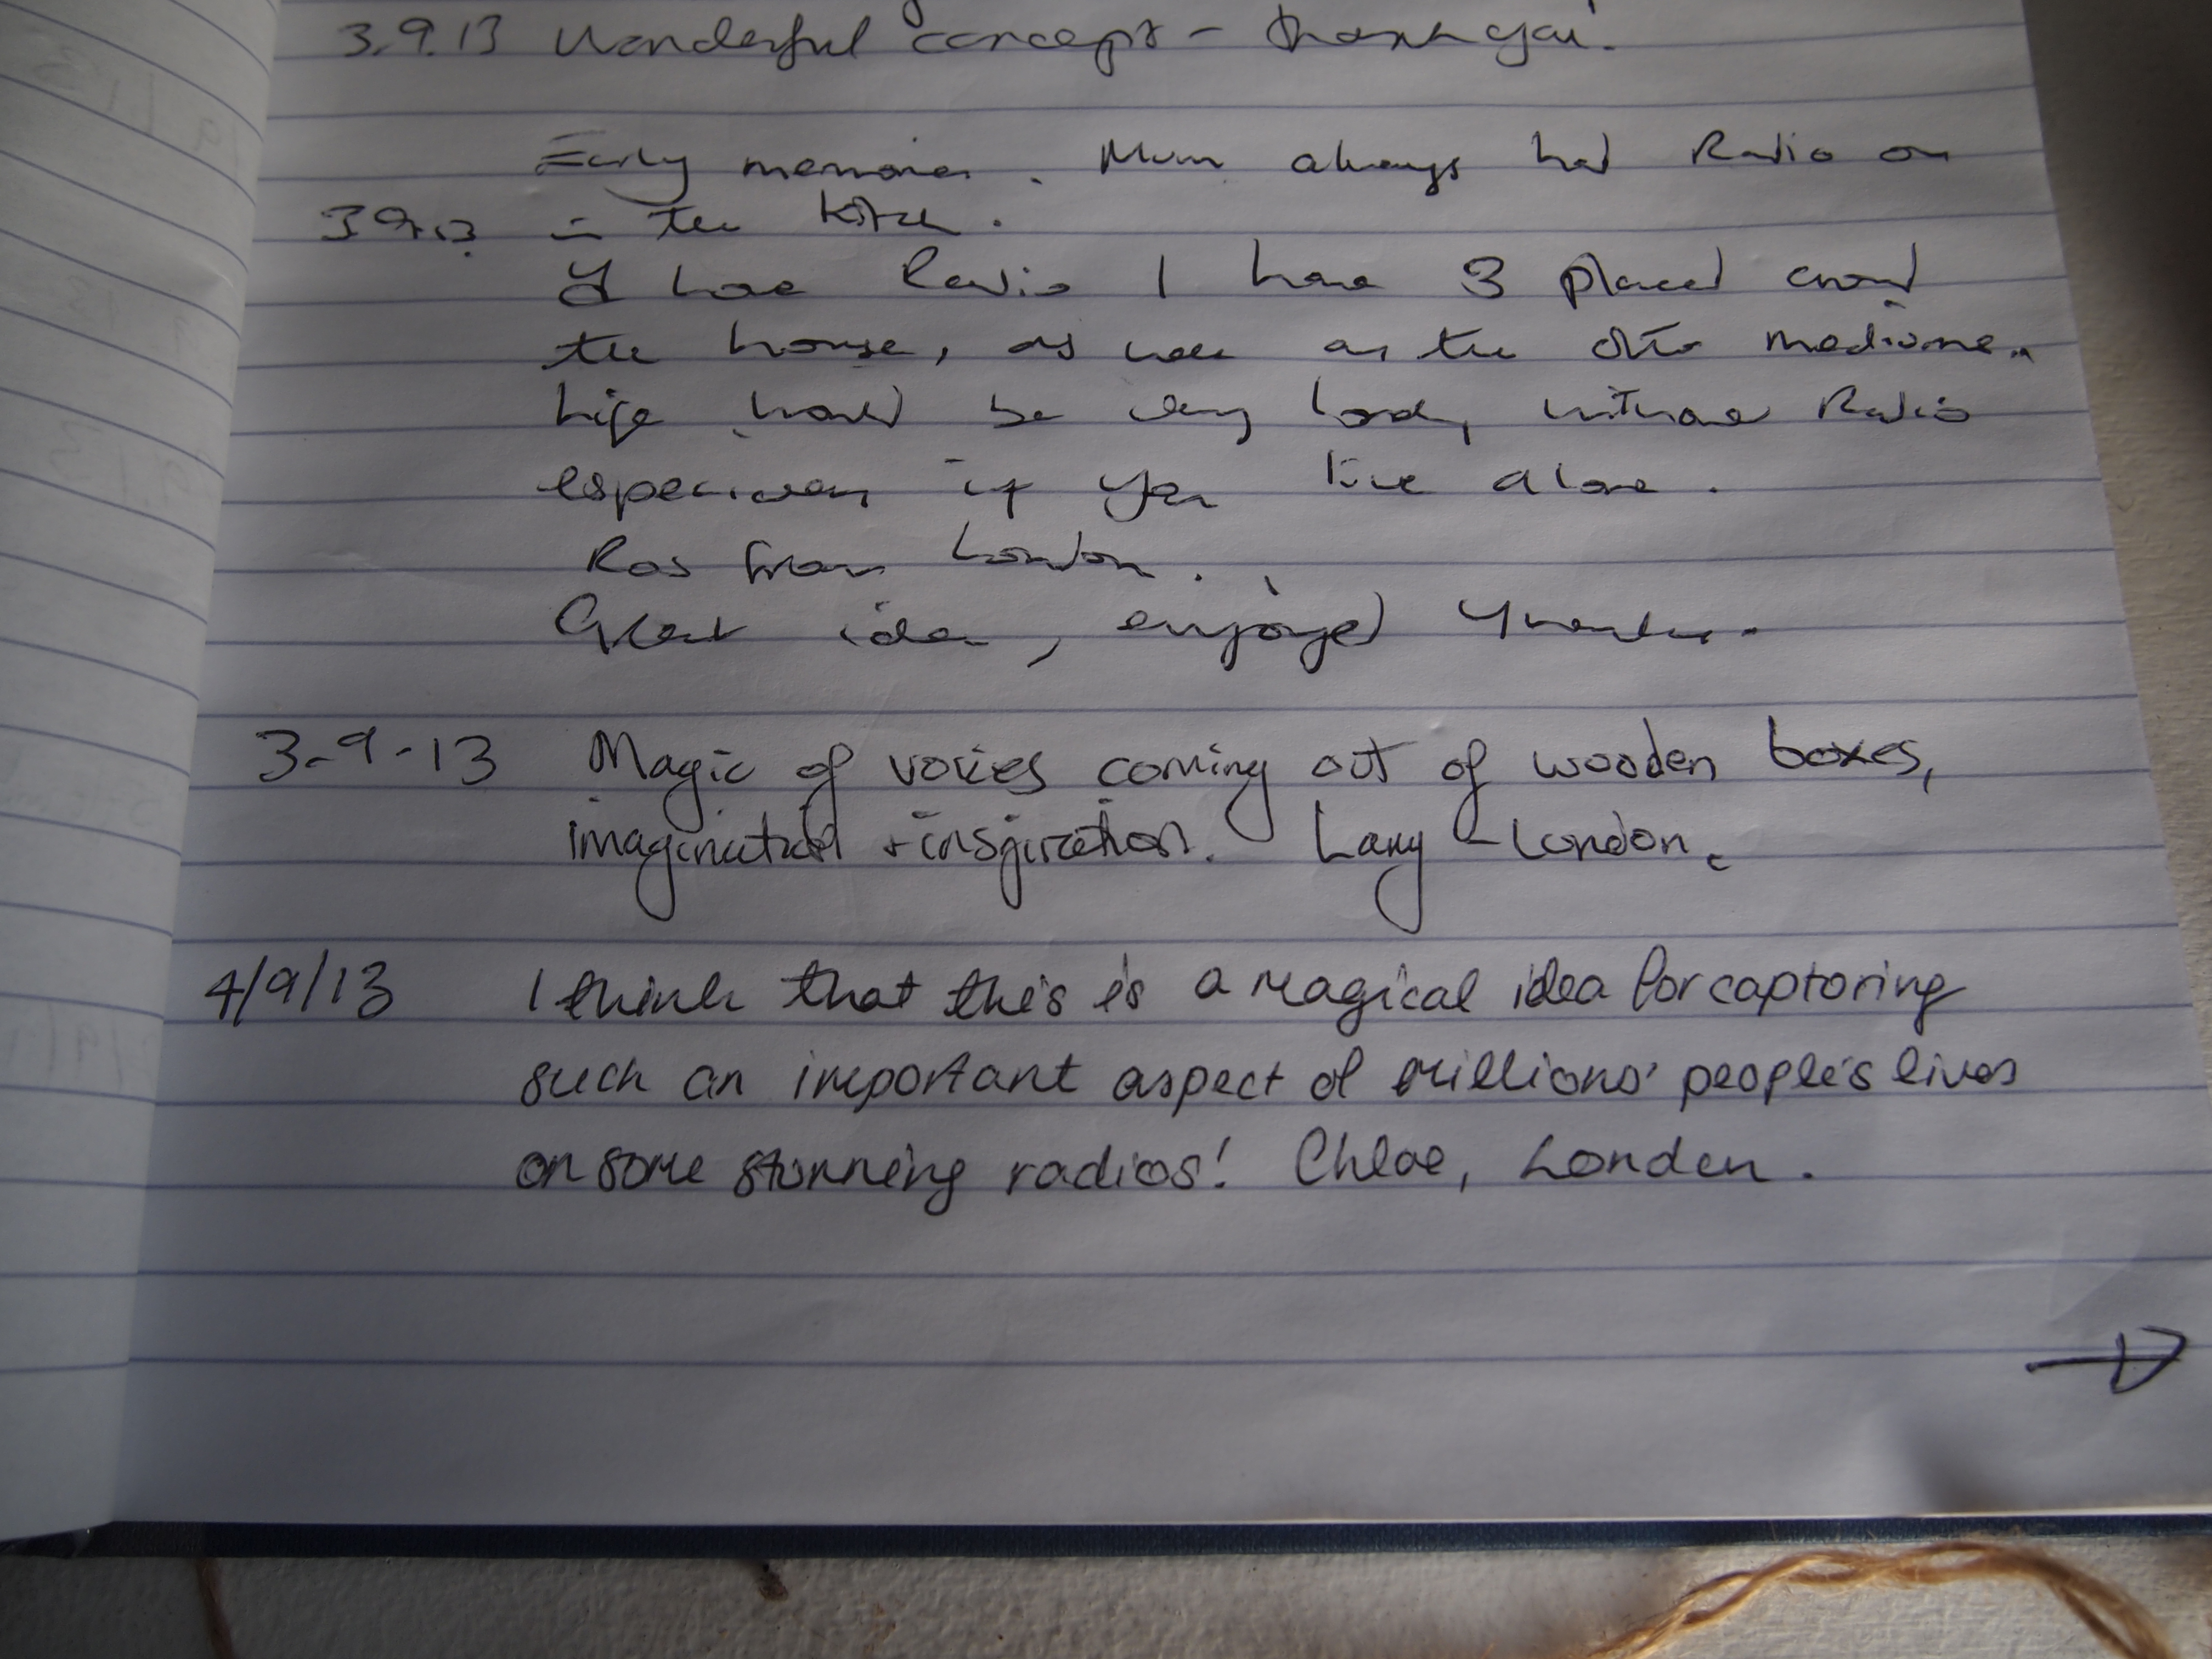 3.9.13 Wonderful concept - thank you.
Early memories. Mum always had Radio on
3.9.13 in the kitchen.
I love Radio I have 3 placed around
the house, as well as the other mediums.
Life would be very lonely without Radio
especially if you live alone.
Ros from London.
Great idea, enjoyed
3-9-13 Magic of voices coming out of wooden boxes,
imagination + inspiration. Larry - London.
4/9/13 I think that this is a magical idea for captoring
such an important aspect of millions' people's lives
on some stunning radios! Chloe, London.
→